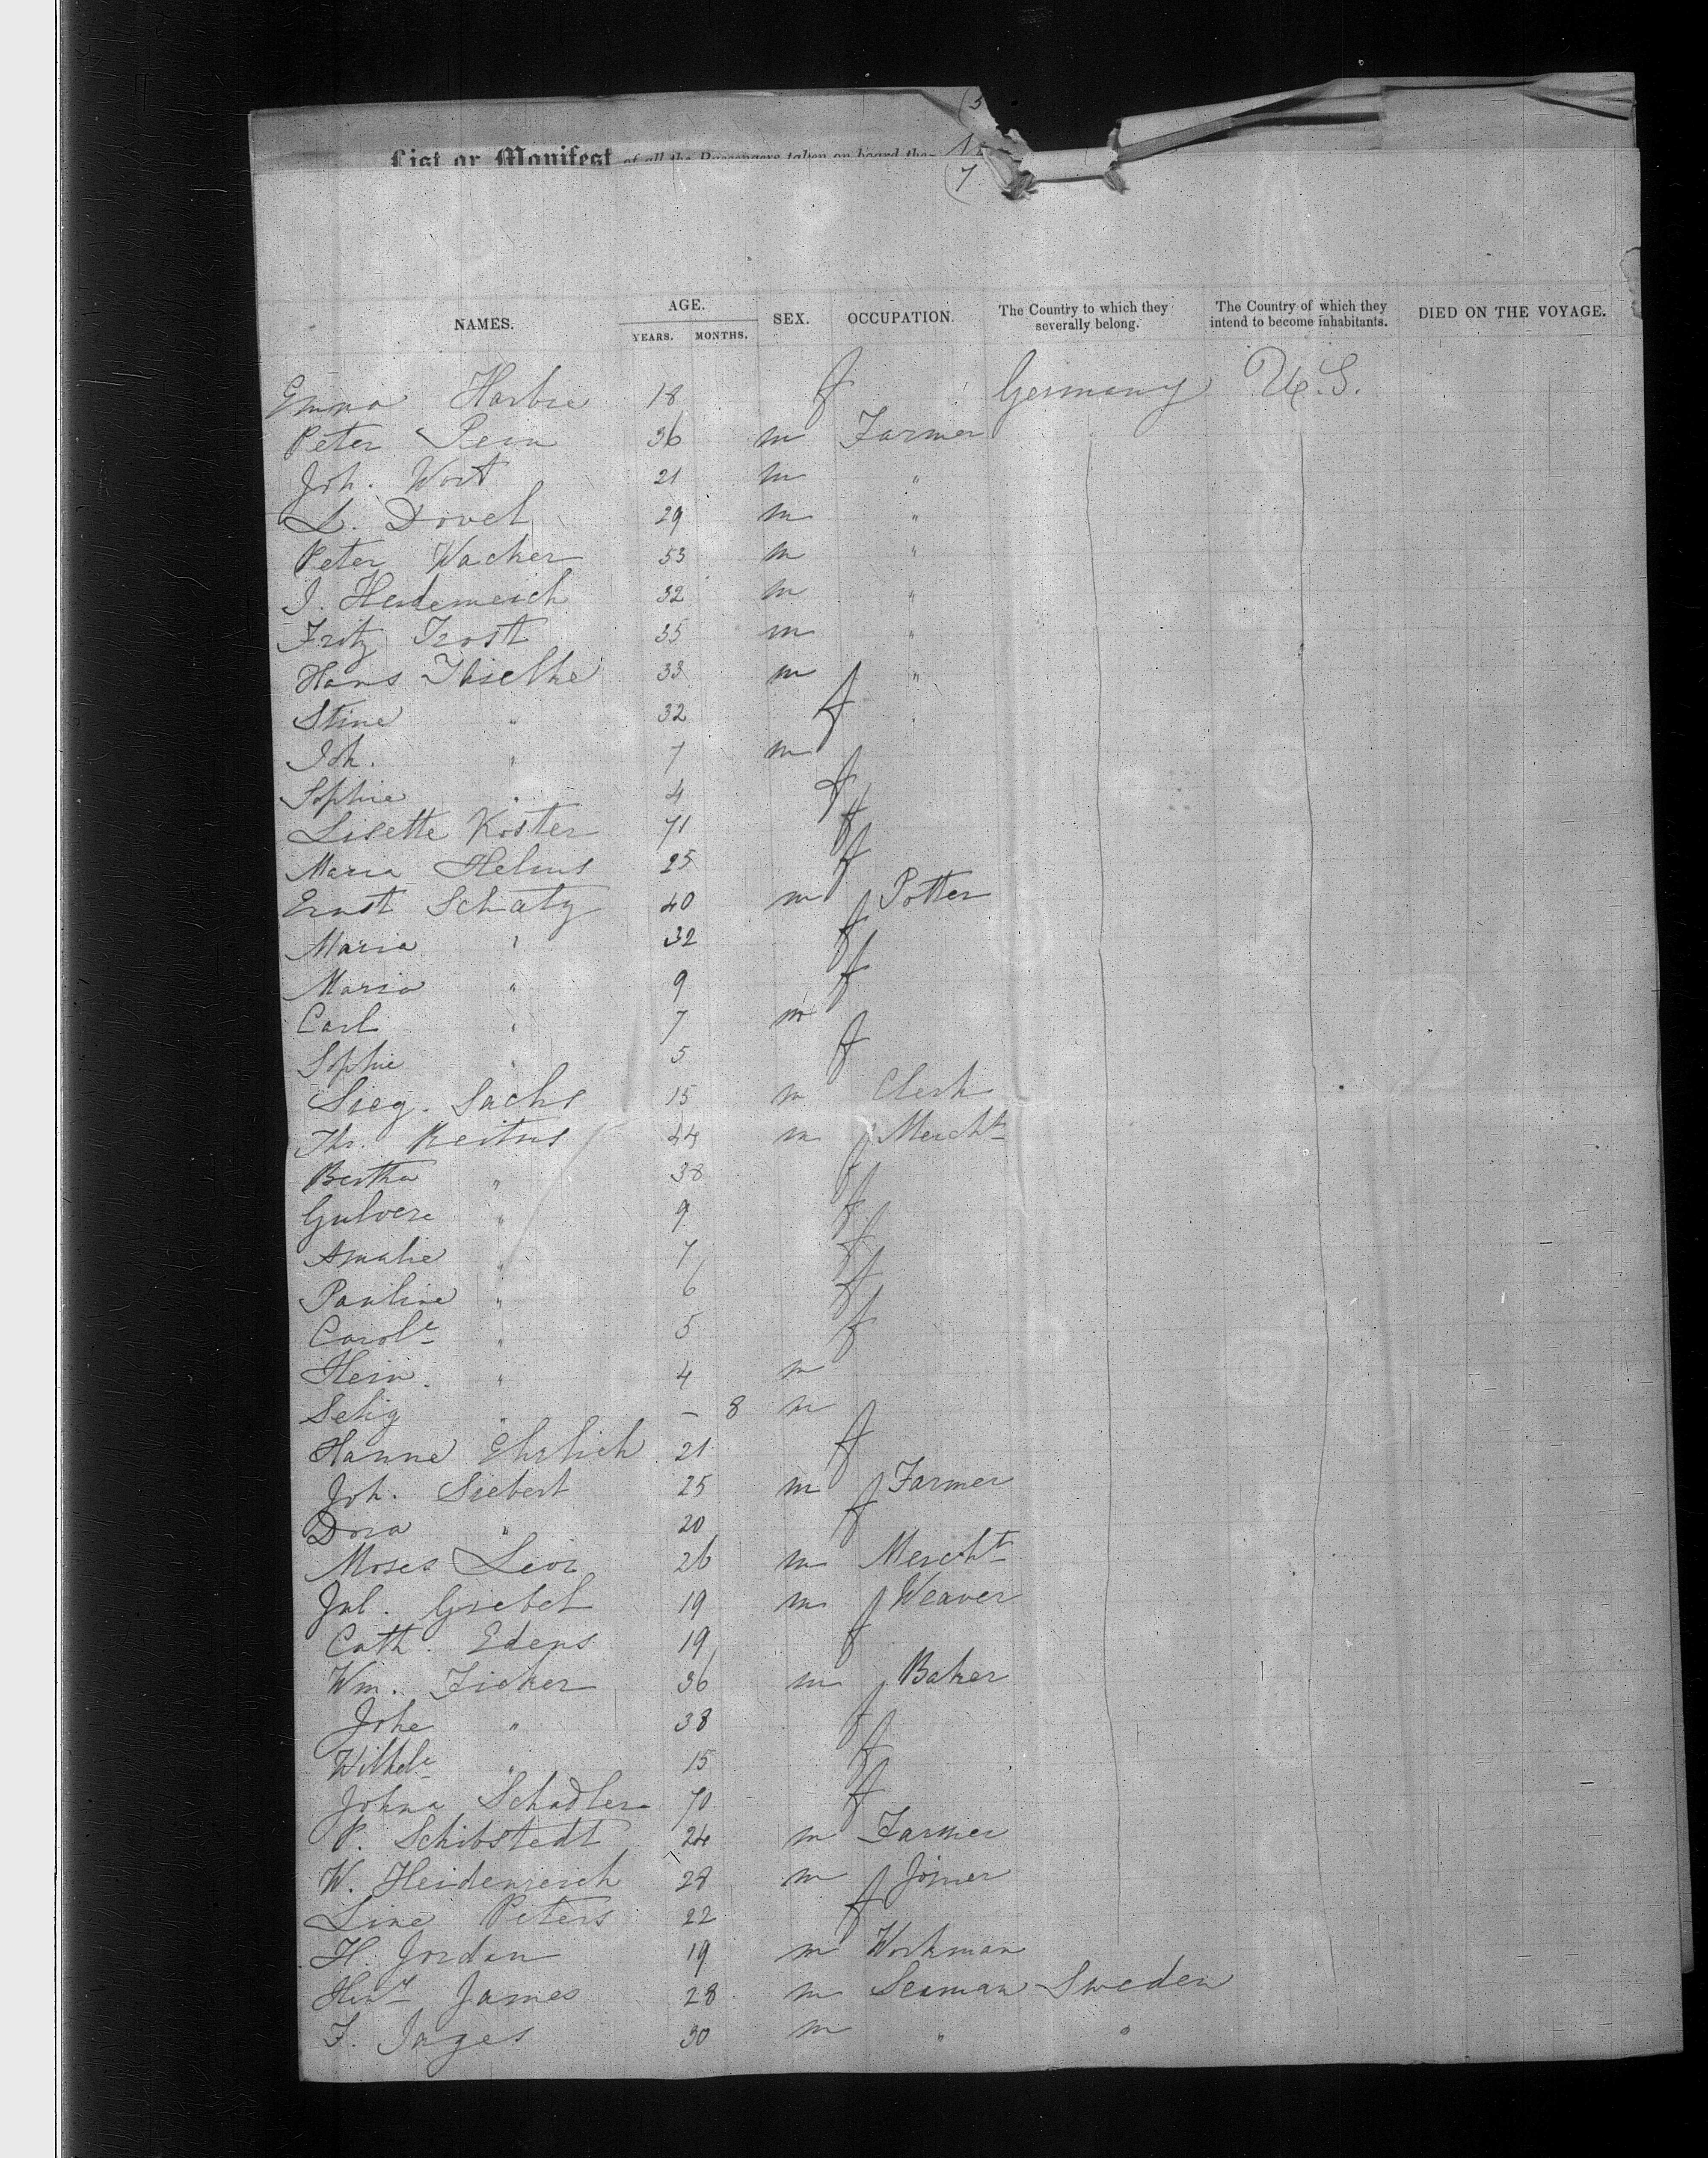 (5
List or Manifest of all the Passengers taken on board the
(7
NAMES. AGE. SEX. OCCUPATION. The Country to which they severally belong. The Country of which they intend to become inhabitants. DIED ON THE VOYAGE.
YEARS. MONTHS.
Emma 18 f Germany U.S.
Peter 36 m Farmer
Joh. Wort 21 m "
L. 29 m "
Peter Wacker 53 m "
J. 32 m "
Fritz Trost 35 m "
Hans 33 m "
Stine " 32 f
Joh. " 7 m
Sophie " 4 f
Lisette Koster 71 f
Maria Helms 25 f
Ernst Schatz 40 m Potter
Maria " 32 f
Maria " 9 f
Carl " 7 m
Sophie " 5 f
Sieg. Sachs 15 m Clerk
44 m Mercht
Bertha " 38 f
9 f
Amalie " 7 f
Pauline " 6 f
Carole " 5 f
Hein. " 4 m
Selig " – 8 m
Hanne Ehrlich 21 f
Joh. Siebert 25 m Farmer
Dora " 20 f
Moses 26 m Mercht
Jul. Griebel 19 m Weaver
Cath. Edens 19 f
Wm. Ficker 36 m Baker
Johe " 38 f
Wilhele " 15 f
Johna Schadler 70 f
P. Schibstedt 24 m Farmer
W. Heidenreich 28 m Joiner
Line Peters 22 f
H. Jordan 19 m Workman
Heny James 28 m Seaman Sweden
F. Jages 30 m " "